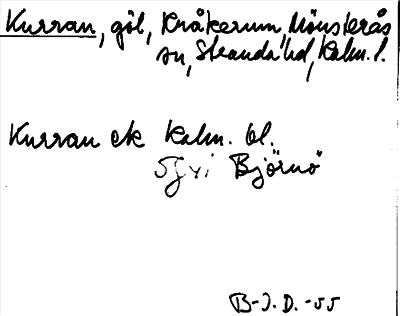 Kurran, göl, Kråkerum, Mönsterås
sn, Stranda hd, Kalm. l.
Kurran ek Kalm. bl.
5g vi Björnö
B-J. D. -55